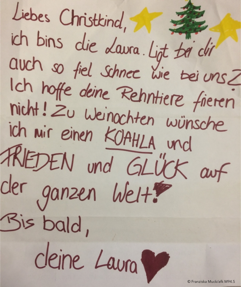 Liebes Christkind,
ich bins die Laura. Ligt bei dir
auch so fiel Schnee wie bei uns?
Ich hoffe deine Rehntiere frieren
nicht! Zu Weinachten wünsche
ich mir einen KOAHLA und
FRIEDEN und GLÜCK auf
der ganzen Welt!
Bis bald,
deine Laura